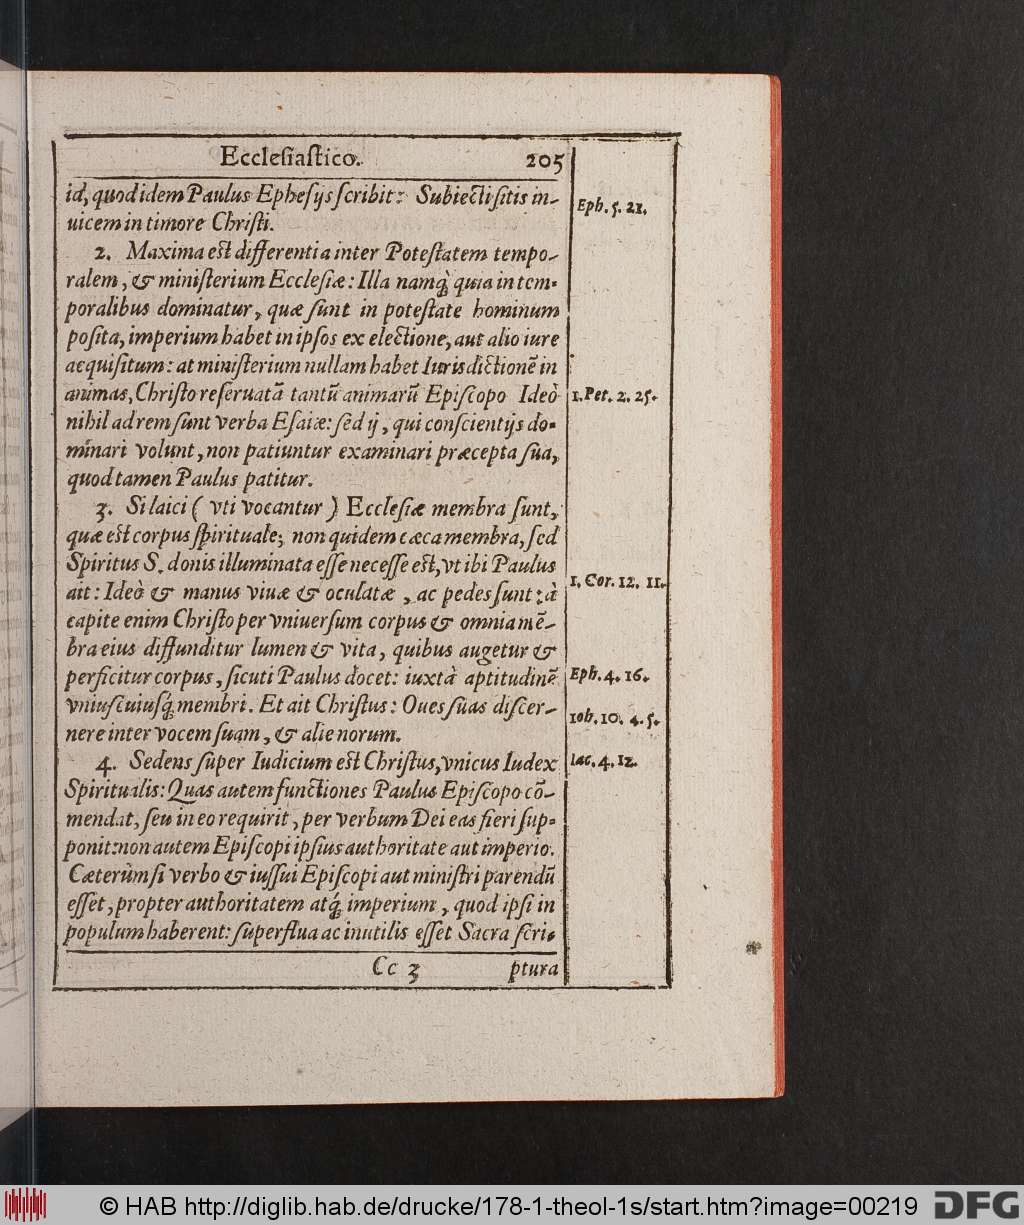 Ecclesiastico. 205
id, quod idem Paulus Ephesijs scribit: Subiecti sitis in-
Eph. 5. 21.
uicem in timore Christi.
2. Maxima est differentia inter Potestatem tempo-
ralem, & ministerium Ecclesiæ: Illa namq́; quia in tem-
poralibus dominatur, quæ sunt in potestate hominum
posita, imperium habet in ipsos ex electione, aut alio iure
acquisitum: at ministerium nullam habet Iurisdictionẽ in
animas, Christo reseruatã tantũ animarũ Episcopo Ideò
1. Pet. 2. 25.
nihil ad rem sunt verba Esaiæ: sed ij, qui conscientijs do-
minari volunt, non patiuntur examinari præcepta sua,
quod tamen Paulus patitur.
3. Si laici ( vti vocantur ) Ecclesiæ membra sunt,
quæ est corpus spirituale; non quidem cæca membra, sed
Spiritus S. donis illuminata esse necesse est, vt ibi Paulus
1. Cor. 12. 11.
ait: Ideò & manus viuæ & oculatæ, ac pedes sunt: à
capite enim Christo per vniuersum corpus & omnia mẽ-
bra eius diffunditur lumen & vita, quibus augetur &
perficitur corpus, sicuti Paulus docet: iuxtà aptitudinẽ
Eph. 4. 16.
vniuscuiusq́; membri. Et ait Christus: Oues suas discer-
Ioh. 10. 4. 5.
nere inter vocem suam, & alienorum.
4. Sedens super Iudicium est Christus, vnicus Iudex
Iac. 4. 12.
Spiritualis: Quas autem functiones Paulus Episcopo cõ-
mendat, seu in eo requirit, per verbum Dei eas fieri sup-
ponit: non autem Episcopi ipsius authoritate aut imperio.
Cæterùm si verbo & iussui Episcopi aut ministri parendũ
esset, propter authoritatem atq́; imperium, quod ipsi in
populum haberent: superflua ac inutilis esset Sacra scri-
Cc 3 ptura
© HAB http://diglib.hab.de/drucke/178-1-theol-1s/start.htm?image=00219
DFG